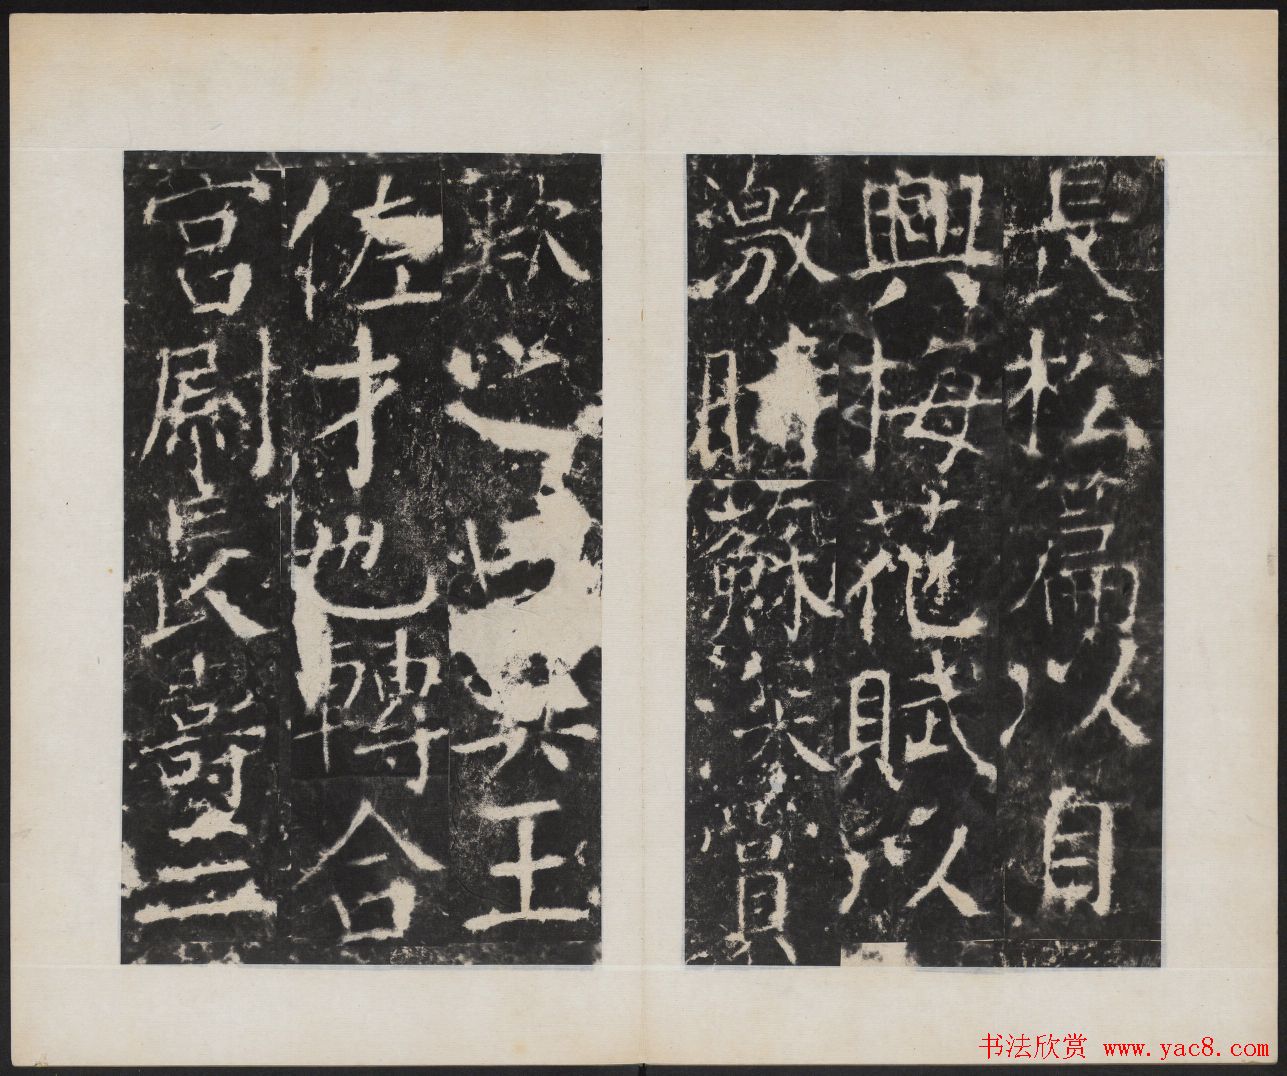 長松篇以自
興梅花賦以
激時蘇賞
歎之真王
佐才也轉合
宮尉長壽三
书法欣赏 www.yac8.com